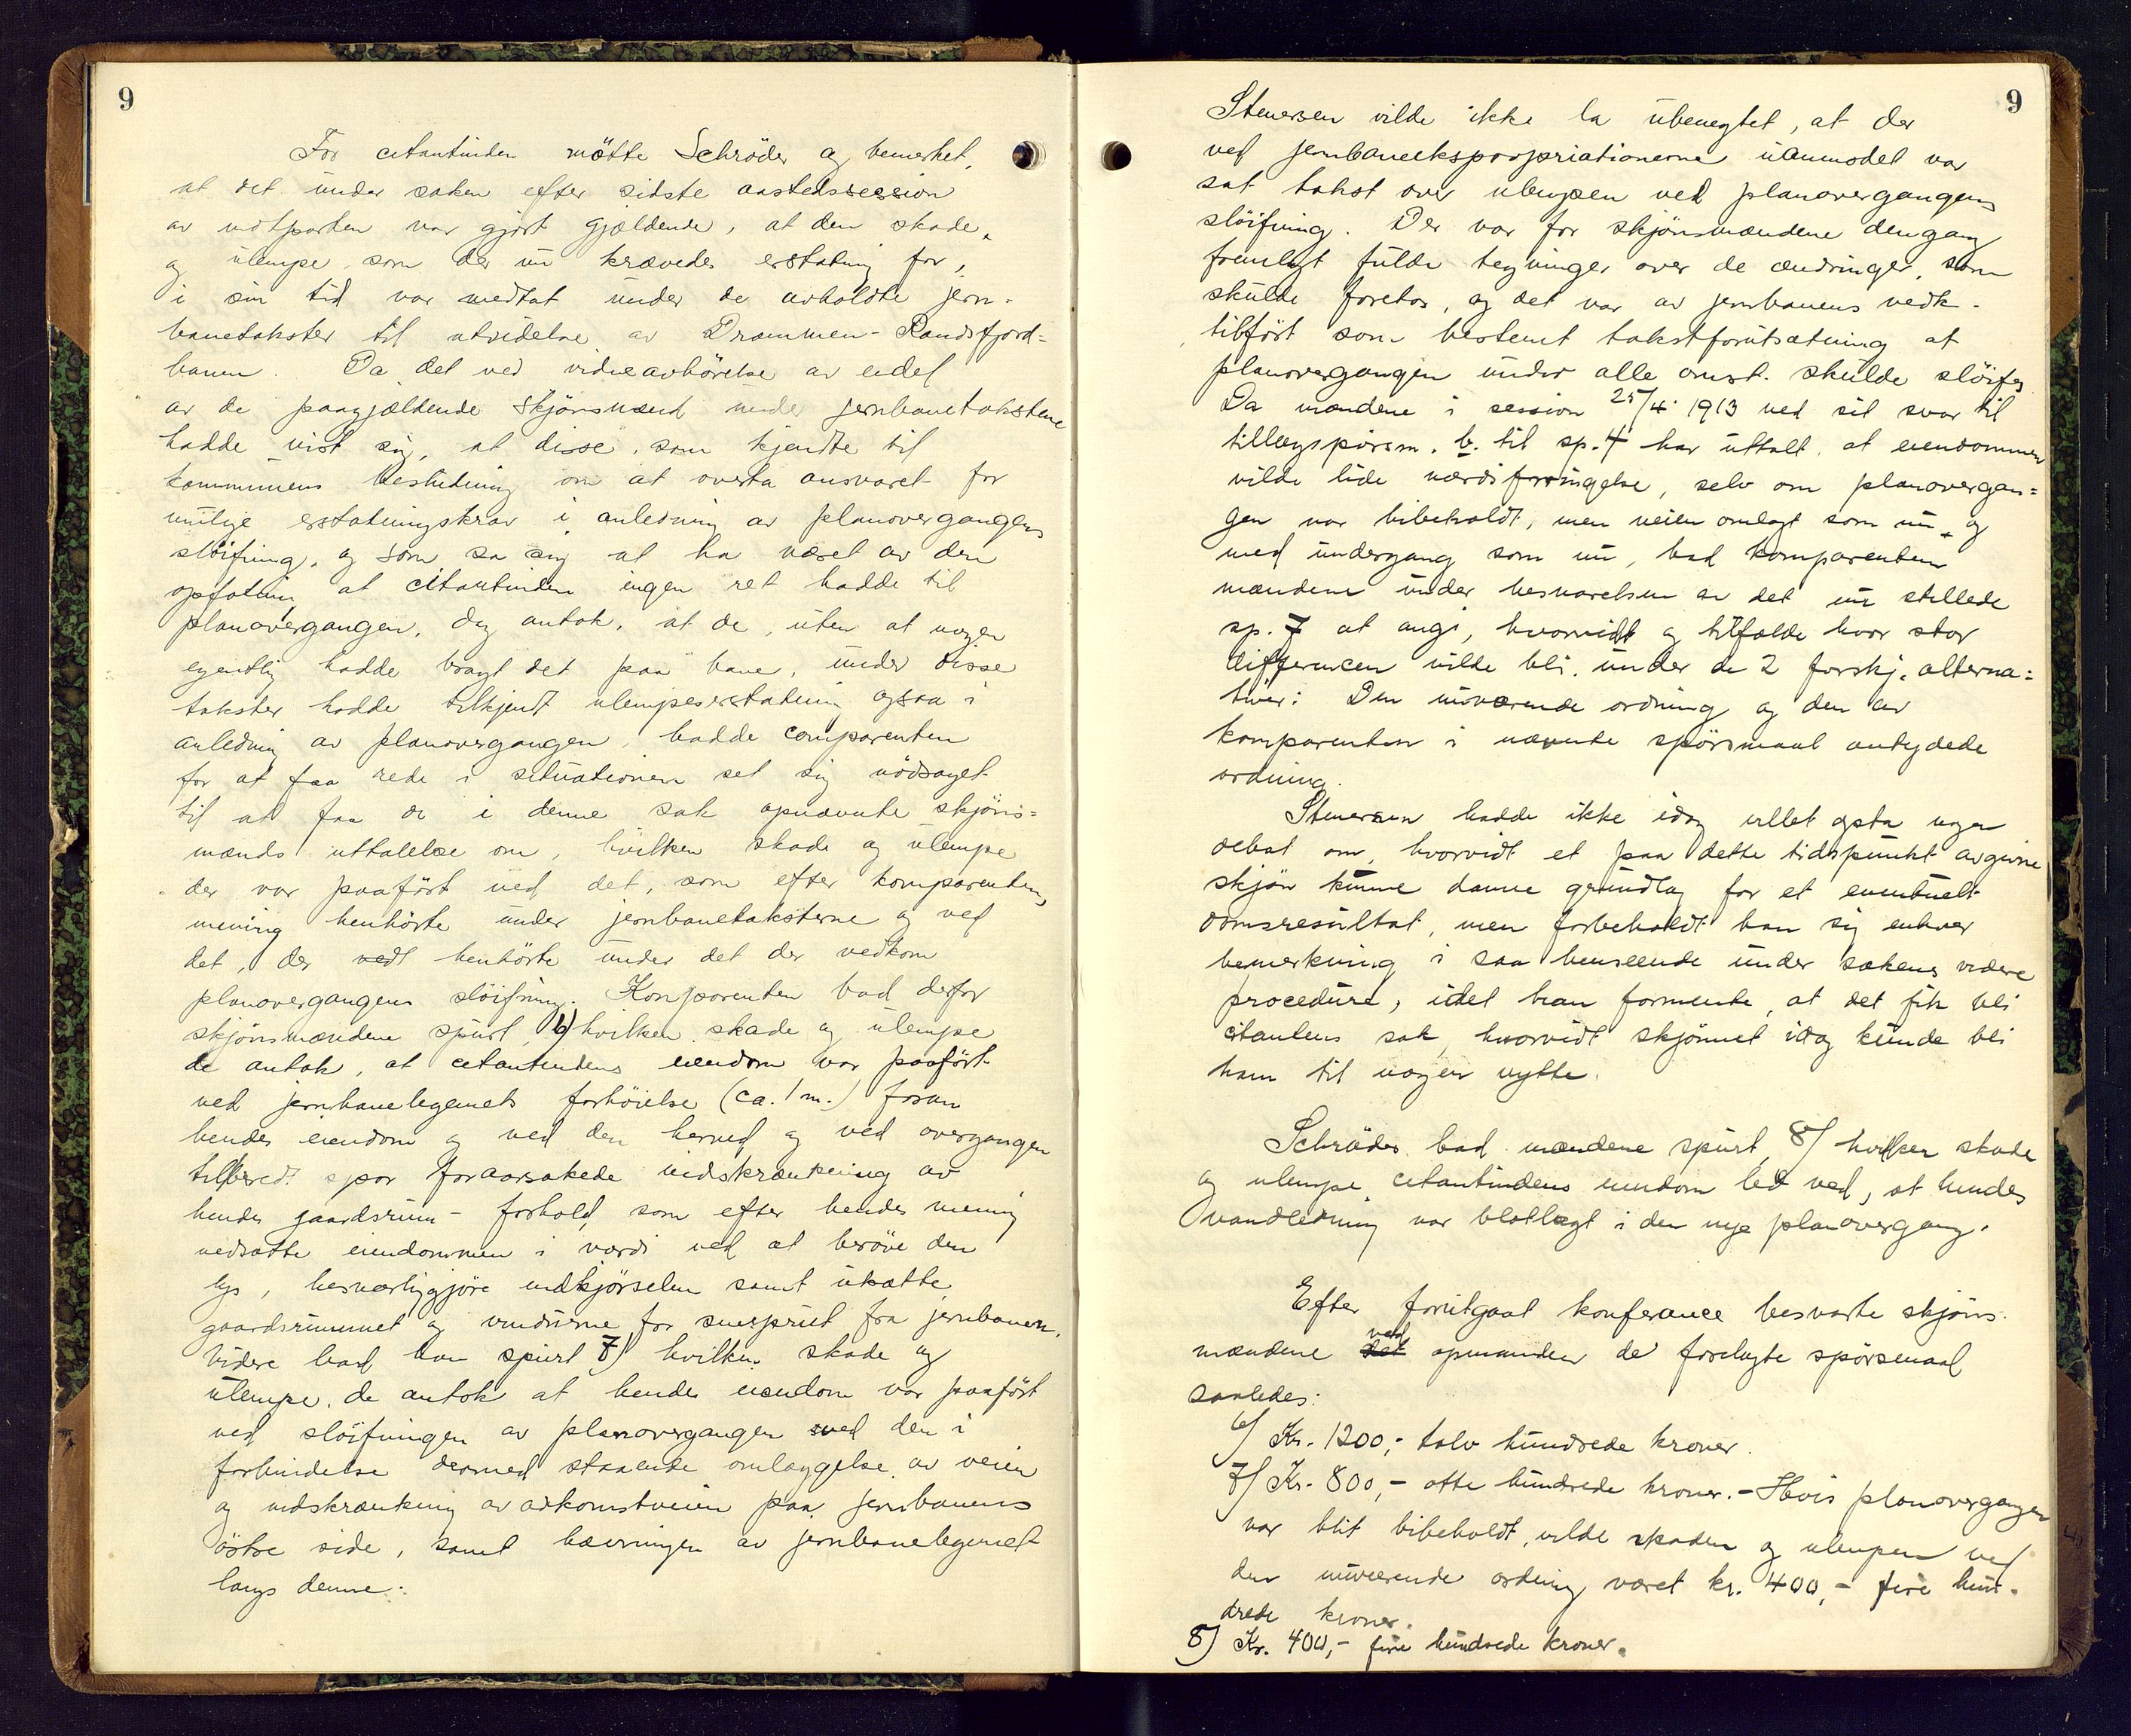 9
For citantinden mötte Schröder og bemerket,
at det under saken efter sidste aastedssession
av motparten var gjort gjældende, at den skade,
og ulempe som der nu krævedes erstatning for,
i sin tid var medtat under de avholdte jern-
banetakster til utvidelse av Drammen-Randsfjord=
banen. Da det ved vidneavhörelse av endel
av de paagjældende skjönsmænd under jernbanetakstene
hadde vist sig, at disse, som kjendte til
kommunens beslutning om at overta ansvaret for
mulige erstatningskrav i anledning av planovergangens
slöifning, og som sa sig at ha været av den
opfatning at citantinden ingen ret hadde til
planovergangen, dog antok, at de, uten at nogen
egentlig hadde bragt det paa bane, under disse
takster hadde tilkjendt ulempeserstatning ogsaa i
anledning av planovergangen, hadde comparenten
for at faa rede i situationen set sig nödsaget
til at faa de i denne sak opnævnte skjöns=
mænds uttalelse om, hvilken skade og ulempe
der var paaført ved det, som efter komparentens
mening henhörte under jernbanetaksterne og ved
det, der vedt henhörte under det der vedkom
planovergangens slöifning. Komparenten bad derfor
skjönsmændene spurt, 6) hvilken skade og ulempe
de antok, at citantindens eiendom var paaført
ved jernbanelegemets forhöielse (ca. 1 m.) foran
hendes eiendom og ved den herved og ved overgangen
til bredt spor foraarsakede indskrænkning av
hendes gaardsrum - forhold, som efter hendes mening
nedsatte eiendommen i værdi ved at beröve den
lys, besværliggjöre indkjörselen samt utsatte
gaardsrummet og vinduerne for snesprut fra jernbanen.
Videre bad han spurt 7) hvilken skade og
ulempe de antok at hendes eiendom var paaført
ved slöifningen av planovergangen med den i
forbindelse dermed staaende omlæggelse av veien
og indskrænkning av adkomstveien paa jernbanens
östre side, samt hævningen av jernbanelegemet
langs denne.
9
Stenersen vilde ikke la ubenegtet, at der
ved jernbaneekspropriationerne uanmodet var
sat takst over ulempen ved planovergangens
slöifning. Der var for skjönsmændene dengang
fremlagt fulde tegninger over de ændringer, som
skulde foretas, og det var av jernbanens vedk.
tilført som bestemt takstforutsætning at
planovergangen under alle omst. skulde slöifes.
Da mændene i session 25/4 1913 ved sit svar til
tillægspörsm. b. til sp. 4 har uttalt, at eiendommen
vilde lide værdiforringelse, selv om planovergan=
gen var bibeholdt, men veien omlagt som nu, og
med undergang som nu, bad komparenten
mændene under besvarelsen av det nu stillede
sp. 7 at angi, hvorvidt og tilfælde hvor stor
differencen vilde bli under de 2 forskj. alterna=
tiver: Den nuværende ordning og den av
komparenten i nævnte spörsmaal antydede
ordning.
Stenersen hadde ikke idag villet opta nogen
debat om, hvorvidt et paa dette tidspunkt avgivne
skjön kunne danne grundlag for et eventuelt
domsresultat, men forbeholdt han sig enhver
bemerkning i saa henseende under sakens videre
procedure, idet han formente, at det fik bli
citantens sak, hvorvidt skjönnet idag kunde bli
ham til nogen nytte.
Schröder bad mændene spurt, 8) hvilken skade
og ulempe citantindens eiendom led ved, at hendes
vandledning var blotlagt i den nye planovergang.
Efter forutgaat konferance besvarte skjöns-
mændene det ved opmanden de forelagte spörsmaal
saaledes:
6) Kr. 1200,- tolv hundrede kroner.
7) Kr. 800,- otte hundrede kroner. - Hvis planovergangen
var blit bibeholdt, vilde skaden og ulempen ved
den nuværende ordning været kr. 400,- fire hun-
drede kroner.
8) Kr. 400,- fire hundrede kroner.